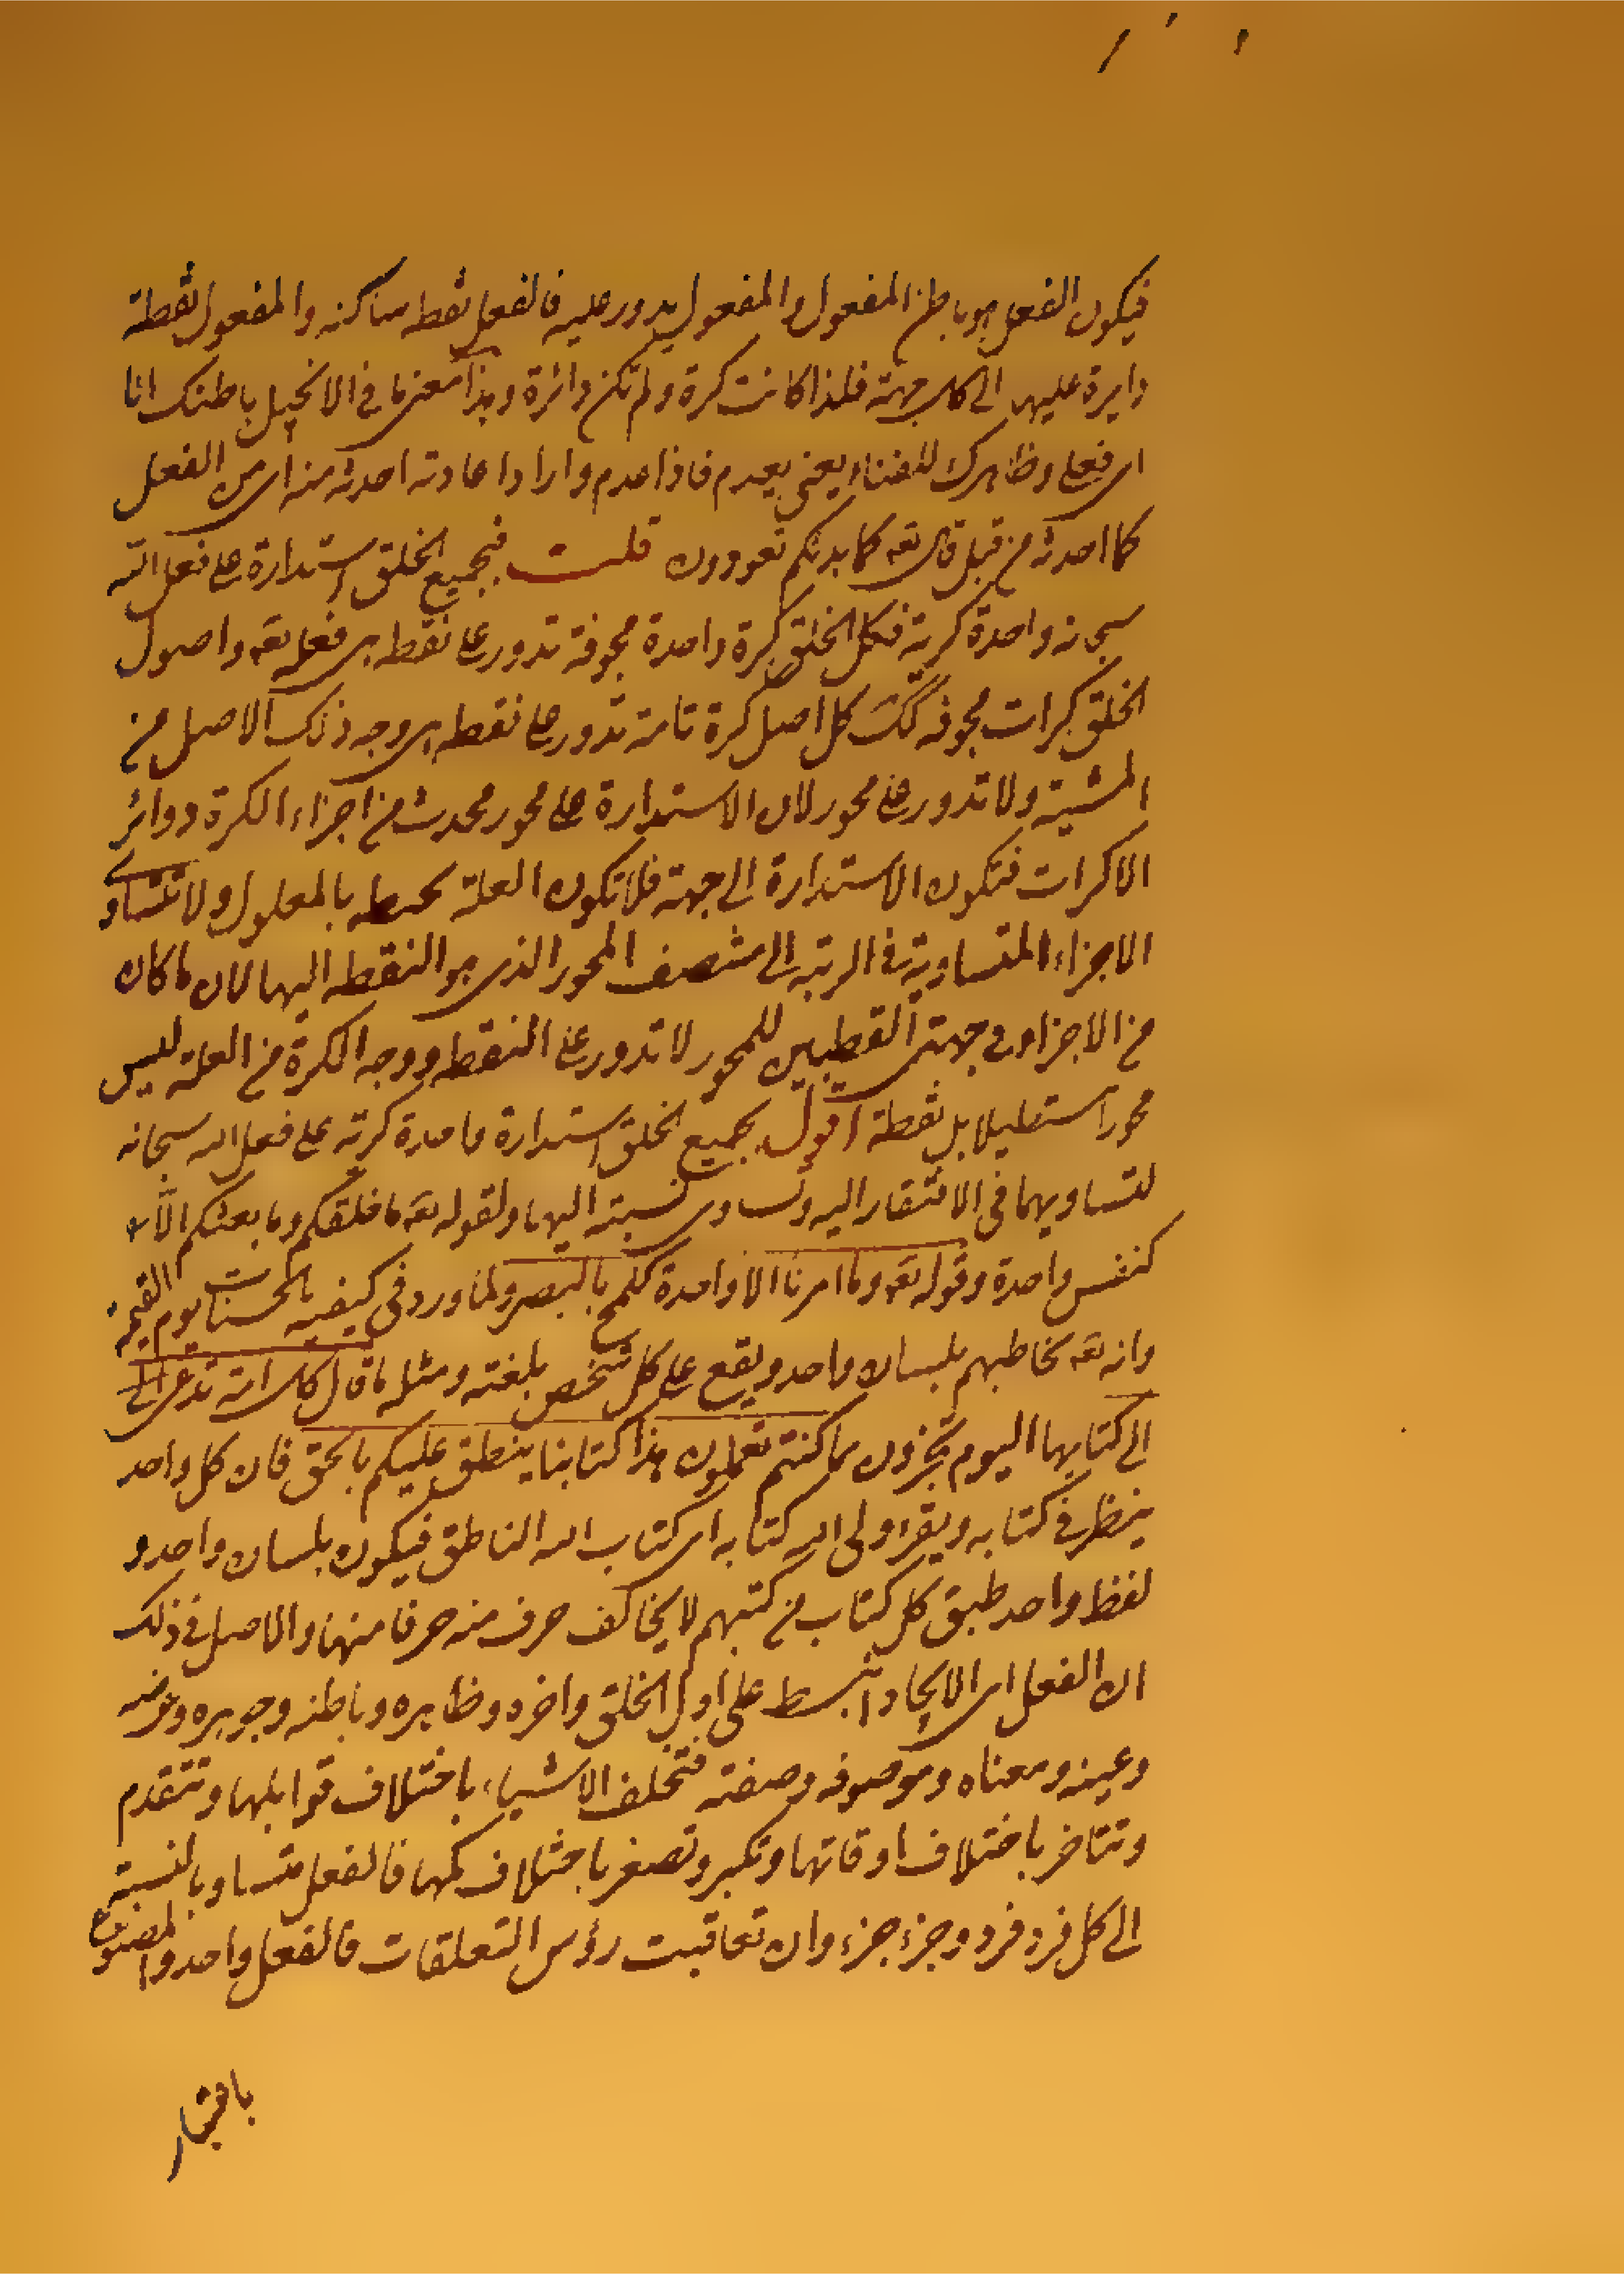 فيكون الفعل هو باطن المفعول والمفعول يدور عليه فالفعل نقطه ساكنه والمفعول نقطة
دايرة عليها الى كل جهة فلذا كانت كرة ولم تكن دائرة وهذا معنى ما في الانجيل باطنك انا
اى فعلى وظاهرك للفناء يعنى يعدم فاذا عدم واراد اعادته احدثه منه اى من الفعل
كما احدثه من قبل قال تعه كما بدئكم تعودون قلت فجميع الخلق استدارة على فعل الله
سبحانه واحدة كرية فكل الخلق كرة واحدة مجوفة تدور على نقطه هى فعله تعه واصول
الخلق كرات مجوفه كك كل اصل كرة تامة تدور على نقطه هى وجه ذلك الاصل من
المشية ولا تدور على محور لان الاستدارة على محور محدث من اجزاء الكرة دوائر
الاكرات فتكون الاستدارة الى جهة فلا تكون العلة محيطه بالمعلول ولا تتساوى
الاجزاء المتساوية فى الرتبه الى منتصف المحور الذى هو النقطه اليها لان ما كان
من الاجزاء فى جهتى القطبين للمحور لا تدور على النقطه ووجه الكرة من العلة ليس
محورا مستطيلا بل نقطة اقول بجميع الخلق استدارة واحدة كرية على فعل الله سبحانه
لتساويهما فى الافتقار اليه وتساوى نسبته اليها ولقوله تعه ما خلقكم وما بعثكم الا
كنفس واحدة وقوله تعه وما امرنا الا واحدة كلمح بالبصر ولما ورد فى كيفيه الحساب يوم القيمة
وانه تعه يخاطبهم بلسان واحد ويقع على كل شخص بلغته ومثله ما قال كل امة تدعى الى
الى كتابها اليوم تجزون ما كنتم تعملون هذا كتابنا ينطق عليكم بالحق فان كل واحد
ينظر فى كتابه ويقرا ولى الله كتابه اى كتاب الله الناطق فيكون بلسان واحد و
لفظ واحد طبق كل كتاب من كتبهم لا يخالف حرف منه حرفا منها والاصل فى ذلك
ان الفعل اى الايجاد انبسط على اول الخلق واخره وظاهره وباطنه وجوهره وعرضه
وعينه ومعناه وموصوفه وصفته فتختلف الاشياء باختلاف قوابلها وتتقدم
وتتاخر باختلاف اوقاتها وتكبر وتصغر باختلاف كمها فالفعل متساو بالنسبة
الى كل فرد فرد وجزء جزء وان تعاقبت رؤس التعلقات فالفعل واحد والمصنوع